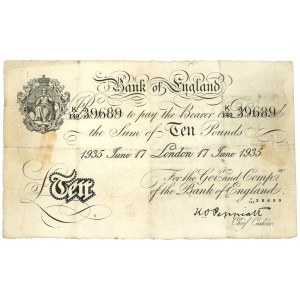 Bank of England
K/143 39689 to pay the Bearer 39689
the Sum of Ten Pounds
1935 June 17 London 17 June 1935
For the Govr. and Compa.
of the Bank of England.
Ten
K.O. Peppiatt
Chief Cashier